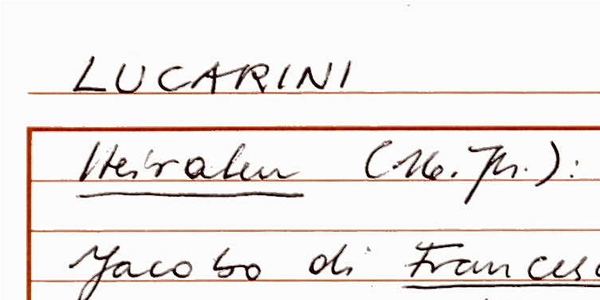 LUCARINI
Heiraten (16. Jh.):
Jacobo di Francesc